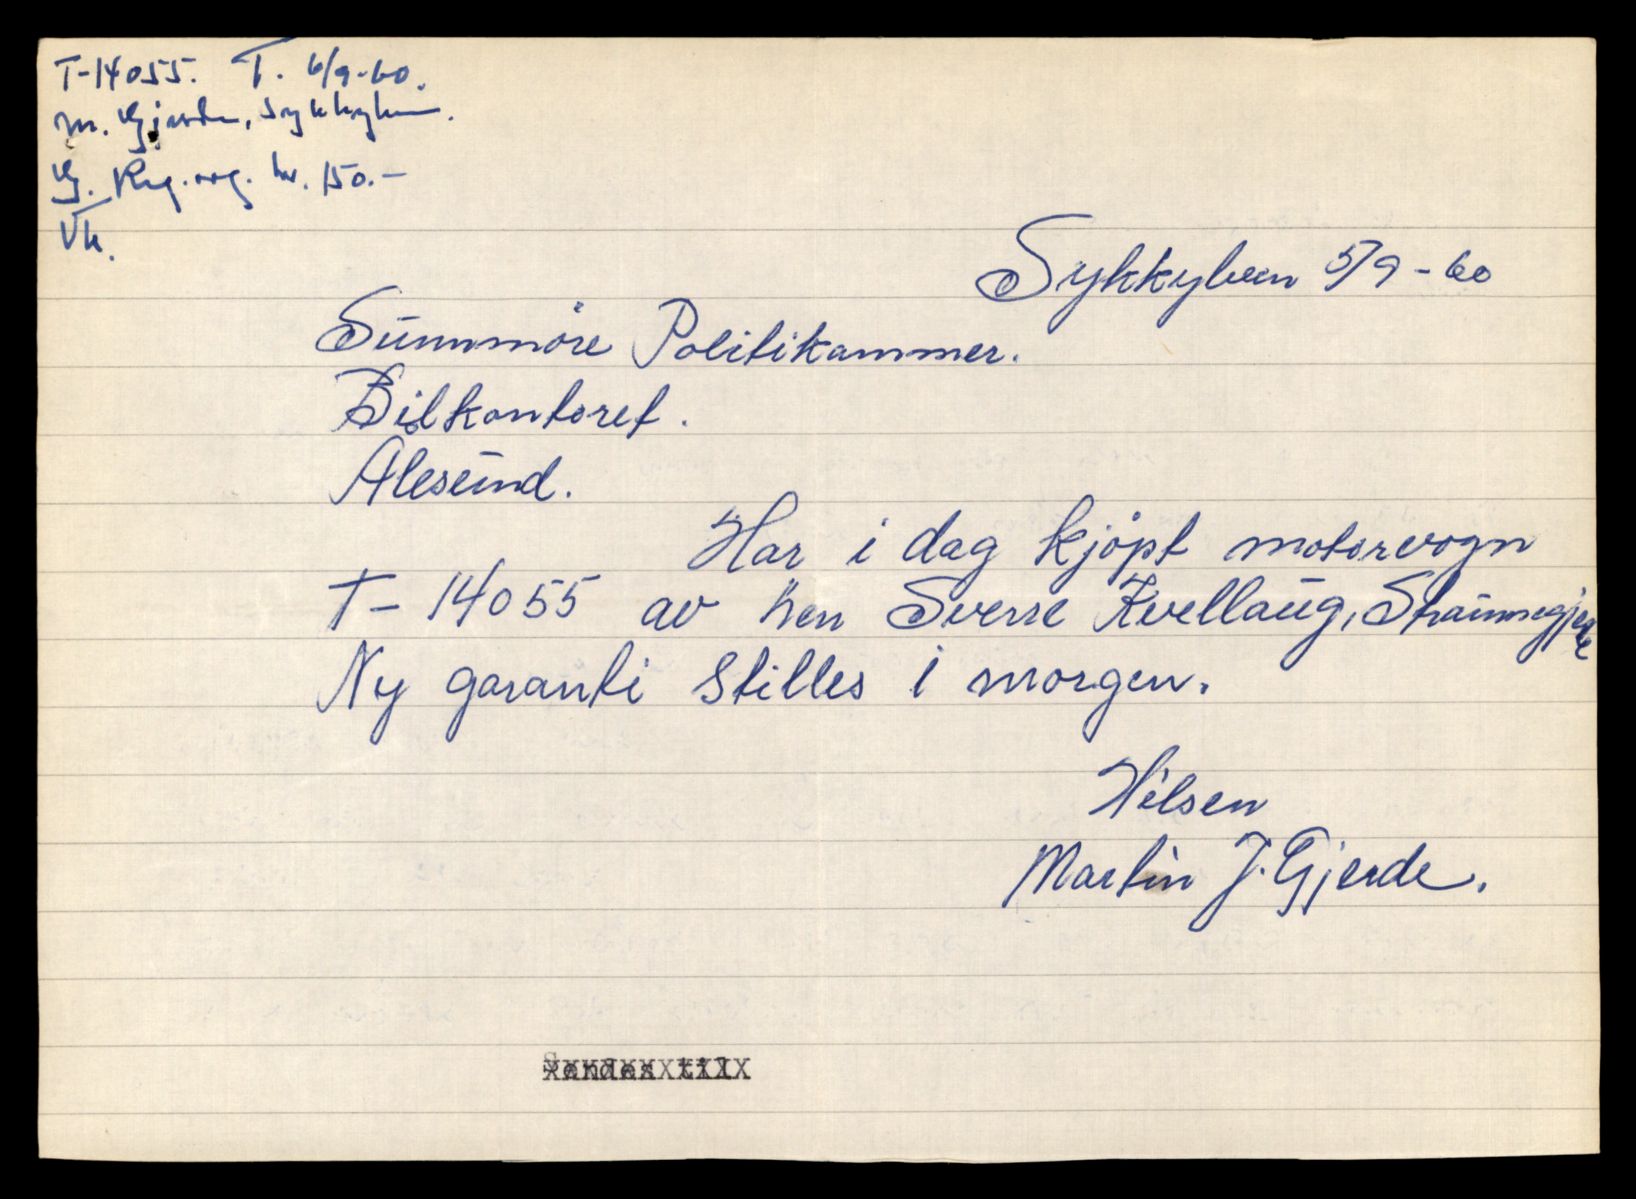 T-14055. T. 6/9-60.
M. Gjerde, Sykkylven.
Reg. avg. kr. 150.-
Sykkylven 5/9-60
Sunnmöre Politikammer.
Bilkontoret.
Ålesund.
Har i dag kjöpt motorvogn
T-14055 av hen Sverre Kvellaug, Straumsgjerde
Ny garanti stilles i morgen.
Hilsen
Martin J. Gjerde.
Sendes til